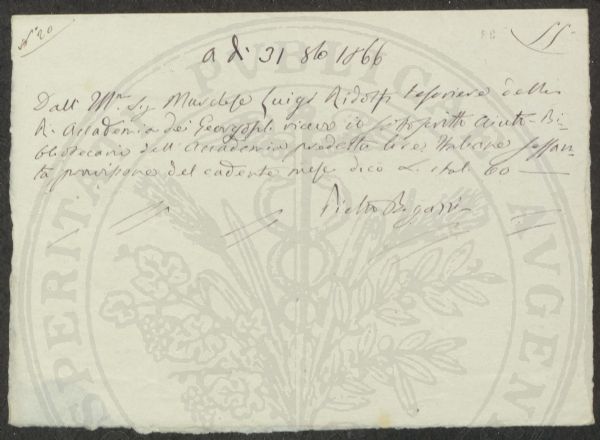 N° 20
55
a dì 31 8bre 1866
Dall' Ill.mo Sig. Marchese Luigi Ridolfi Tesoriere della
R. Accademia dei Georgofili ricevo io sottoscritto Aiuto-Bi-
bliotecario dell' Accademia predetta lire Italiane sessan-
ta provvisione del cadente mese dico L. ital. 60 —
Pietro Bigazzi
PROSPERITATI PUBLICAE AUGENDAE